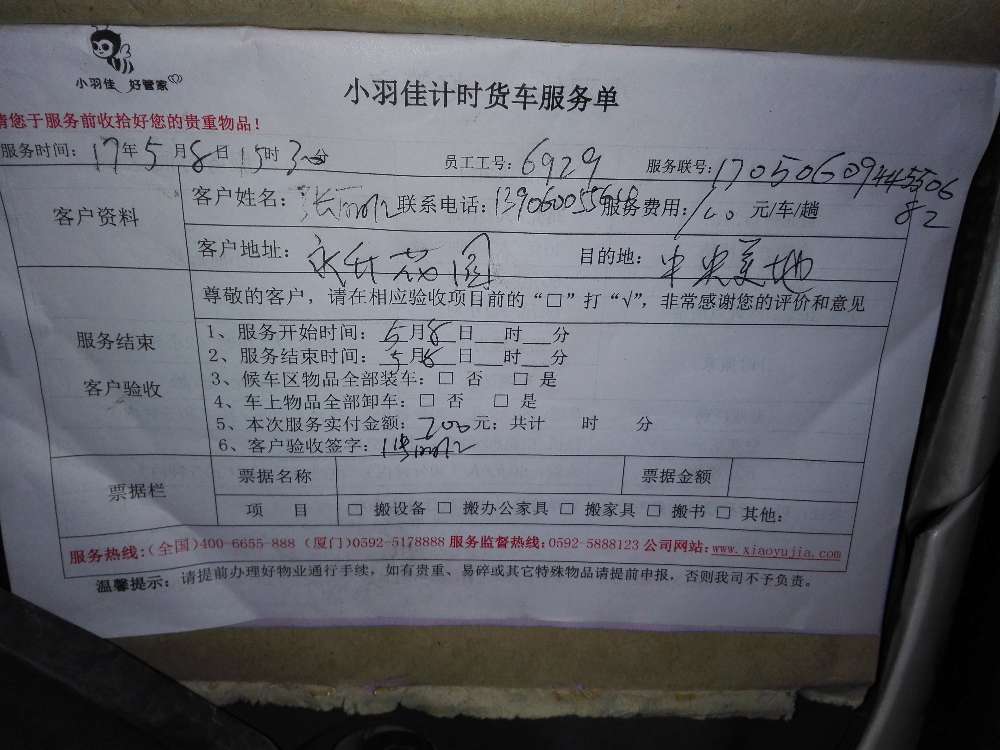 小羽佳 好管家
小羽佳计时货车服务单
请您于服务前收拾好您的贵重物品！
服务时间：17年5月8日15时3分 员工工号：6929 服务联号：17050609445506
82
客户资料
客户姓名：张 联系电话： 服务费用： 元/车/趟
客户地址：永升花园 目的地：中央美地
尊敬的客户，请在相应验收项目前的“□”打“√”，非常感谢您的评价和意见
服务结束
客户验收
1、服务开始时间：5月8日__时__分
2、服务结束时间：5月8日__时__分
3、候车区物品全部装车：□ 否 □ 是
4、车上物品全部卸车：□ 否 □ 是
5、本次服务实付金额：200元；共计 时 分
6、客户验收签字：张
票据栏
票据名称 票据金额
项 目 □ 搬设备 □ 搬办公家具 □ 搬家具 □ 搬书 □ 其他：
服务热线：（全国）400-6655-888（厦门）0592-5178888 服务监督热线：0592-5888123 公司网站：www.xiaoyujia.com
温馨提示：请提前办理好物业通行手续，如有贵重、易碎或其它特殊物品请提前申报，否则我司不予负责。